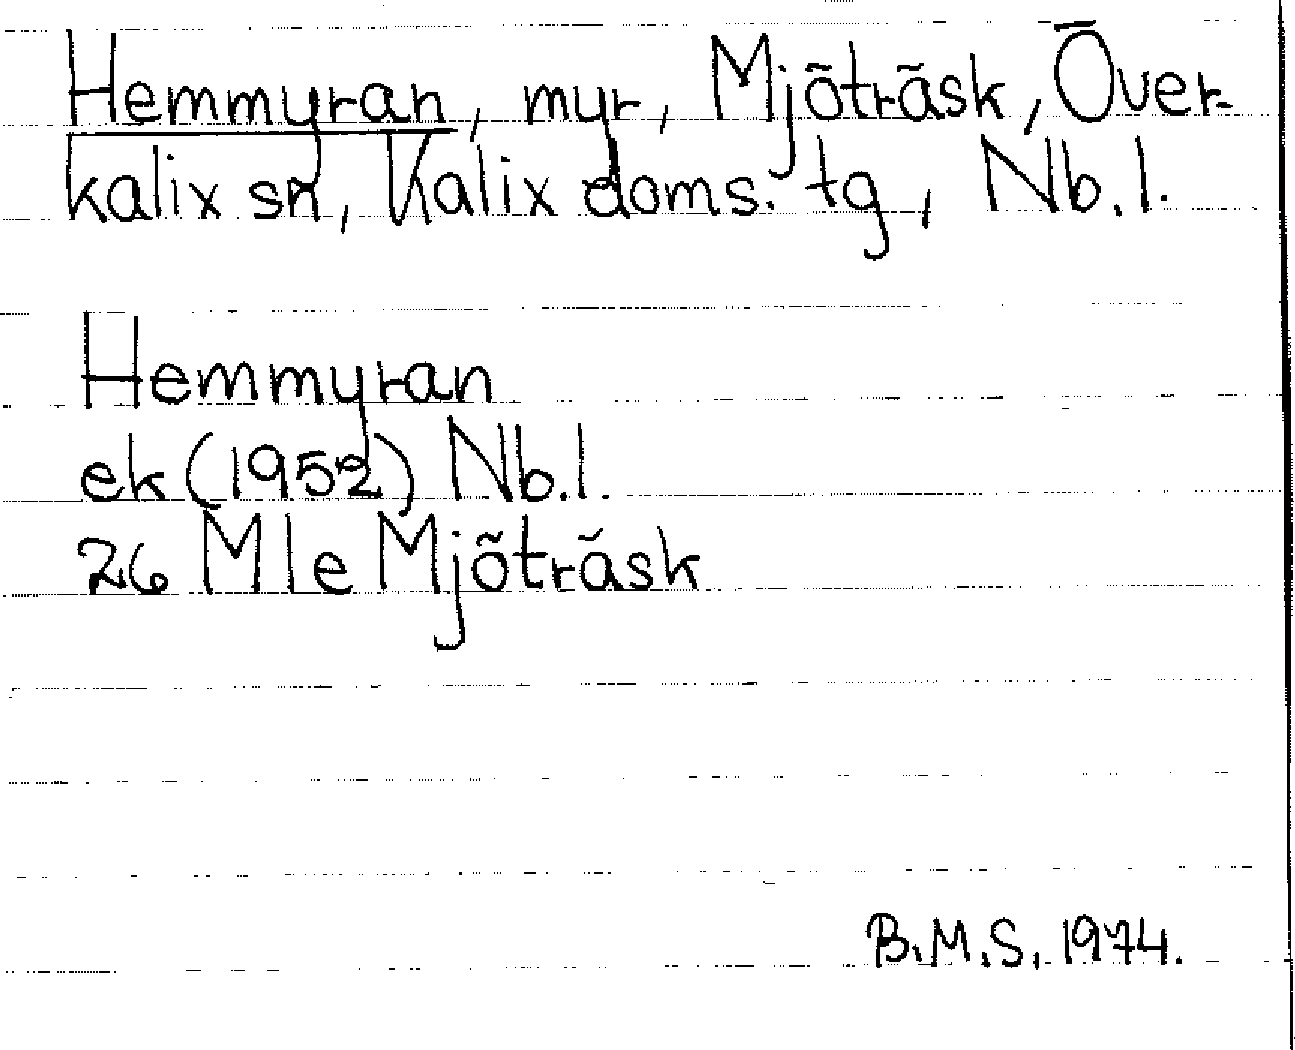 Hemmyran, myr, Mjöträsk, Över-
kalix sn, Kalix doms. tg, Nb.l.
Hemmyran
ek (1952) Nb.l.
26 M le Mjöträsk
B.M.S, 1974.